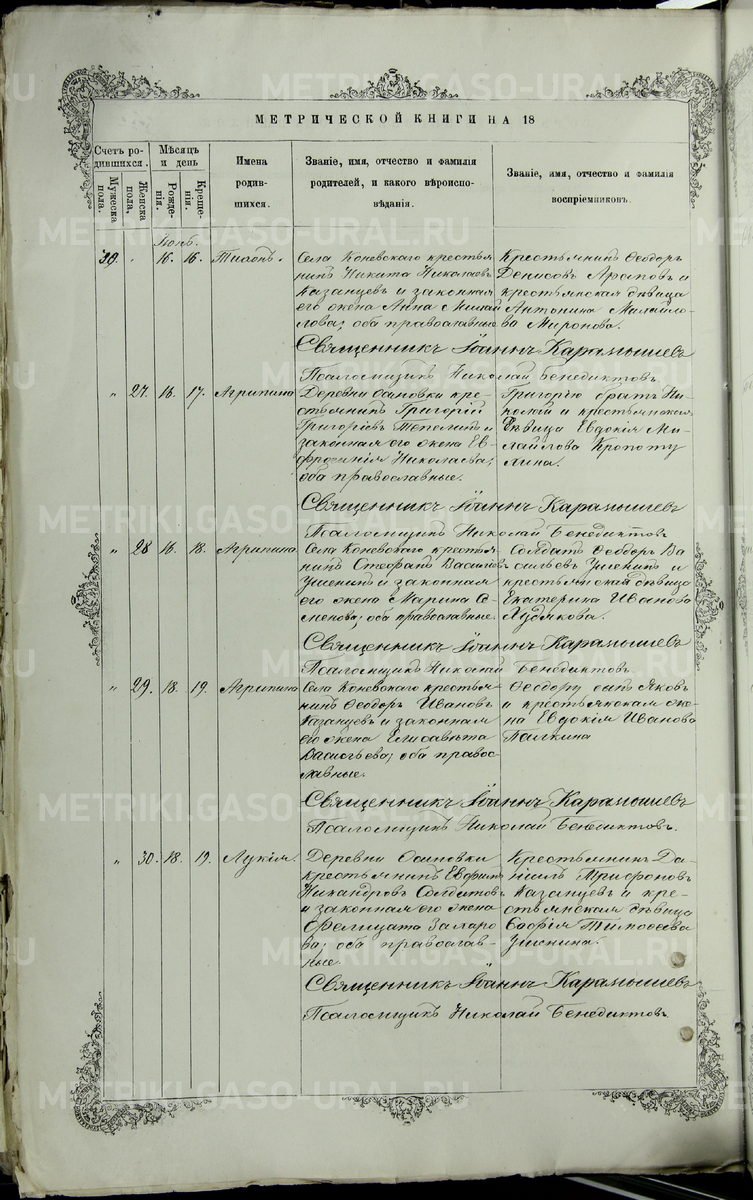 МЕТРИЧЕСКОЙ КНИГИ НА 18
Счетъ ро-
дившихся.
Мужеска
пола.
Женска
пола.
Мѣсяцъ
и день
Рожде-
нія.
Креще-
нія.
Имена
родив-
шихся.
Званіе, имя, отчество и фамилія
родителей, и какого вѣроиспо-
вѣданія.
Званіе, имя, отчество и фамилія
воспріемниковъ.
Іюнь.
39. " 16. 16. Тихонъ.
Села Коневскаго крестья
нинъ Никита Николаевъ
Казанцевъ и законная
его жена Анна Михай
лова; оба православные
Крестьянинъ Ѳеодоръ
Денисовъ Араповъ и
крестьянская дѣвица
Антонина Михайло
ва Миронова.
Священникъ Іоаннъ Карамышевъ
Псаломщикъ Николай Бенедиктовъ.
" 27. 16. 17. Агрипина
Деревни Осиновки кре-
стьянинъ Григорій
Григоріевъ и
законная его жена Ев-
фросинія Николаева;
оба православные.
Григорію братъ Ни-
колай и крестьянская
дѣвица Евдокія Ми-
хайлова Кропоту
лина.
Священникъ Іоаннъ Карамышевъ
Псаломщикъ Николай Бенедиктовъ
" 28 16. 18. Агрипина
Села Коневскаго крестья
нинъ Стефанъ Васильев
и законная
его жена Марина Се
менова; оба православные.
Солдатъ Ѳеодоръ Ва
сильевъ и
крестьянская дѣвица
Екатерина Иванова
Худякова.
Священникъ Іоаннъ Карамышевъ
Псаломщикъ Николай Бенедиктовъ.
" 29. 18. 19. Агрипина
Села Коневскаго крестья-
нинъ Ѳеодоръ Ивановъ
Казанцевъ и законная
его жена Елисавета
Васильева; оба правос-
лавные.
Ѳеодору сынъ Яковъ
и крестьянская же-
на Евдокія Иванова
Палкина
Священникъ Іоаннъ Карамышевъ
Псаломщикъ Николай Бенедиктовъ.
" 30. 18. 19. Лукія.
Деревни Осиновки
крестьянинъ Евфимъ
Никандровъ Солдатовъ
и законная его жена
Фелицата Захаро
ва; оба православ-
ные.
Крестьянинъ Да-
ніилъ Трифоновъ
Казанцевъ и кре-
стьянская дѣвица
Софія Тимоѳеева
Священникъ Іоаннъ Карамышевъ
Псаломщикъ Николай Бенедиктовъ.
METRIKI.GASO-URAL.RU